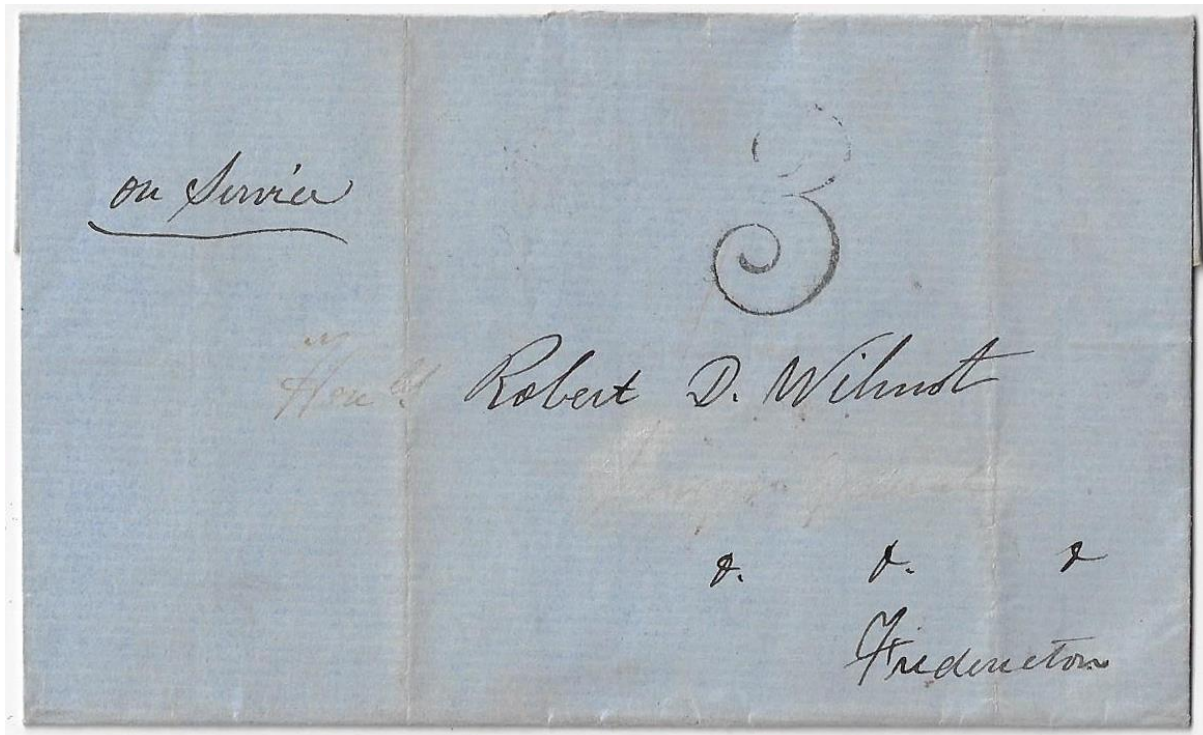 on Service
3
Honbl Robert D. Wilmot
&. &. &
Fredericton